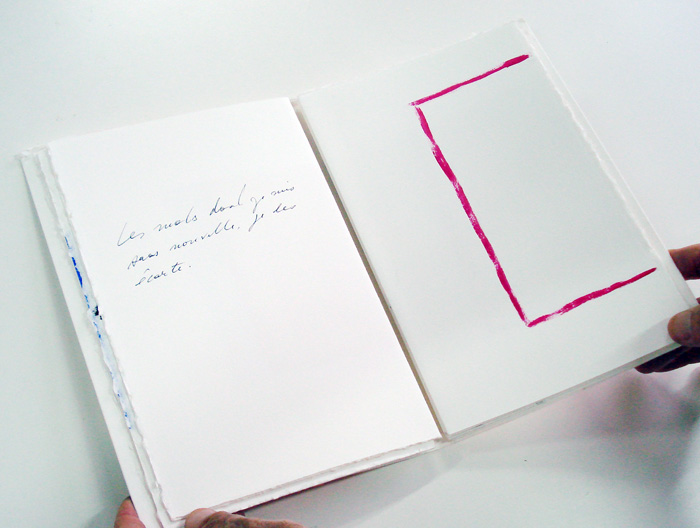 Les mots dont je suis
sans nouvelle, je les
écarte.